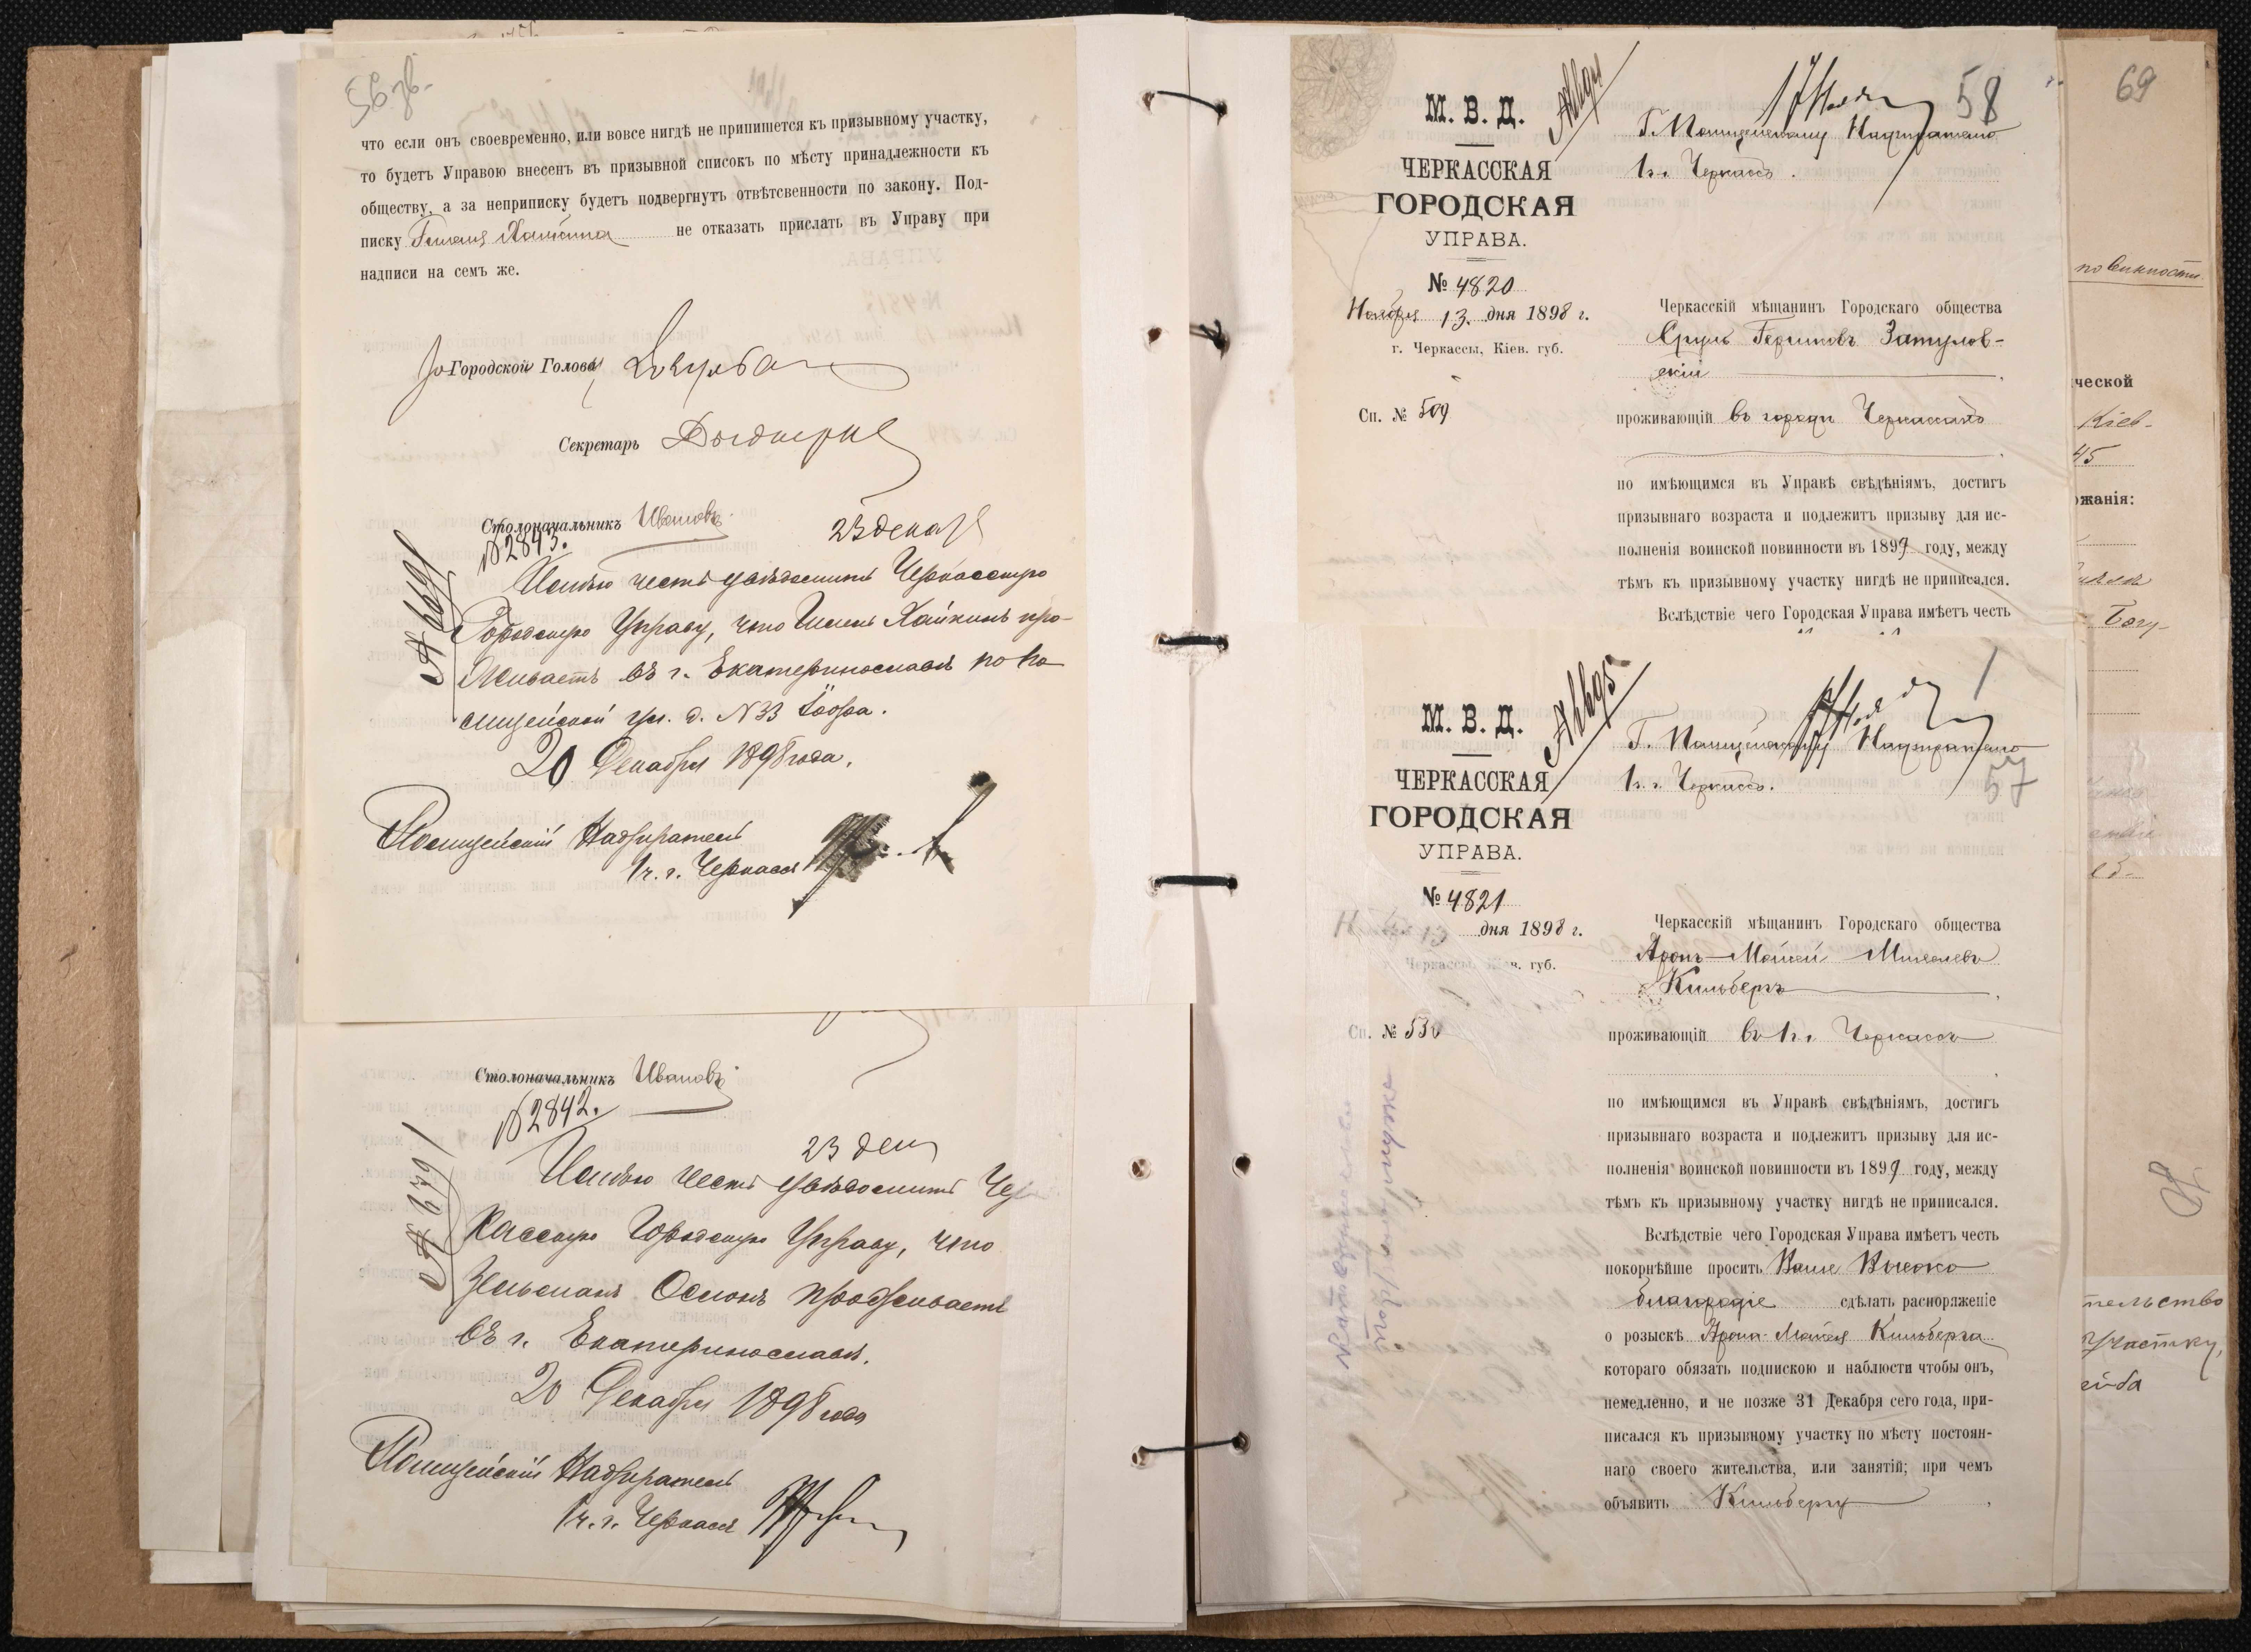 56 зв.
что если онъ своевременно, или вовсе нигдѣ не припишется къ призывному участку,
то будетъ Управою внесенъ въ призывной списокъ по мѣсту принадлежности къ
обществу, а за неприписку будетъ подвергнутъ отвѣтсвенности по закону. Под-
писку Хайкина не отказать прислать въ Управу при
надписи на семъ же.
Городской Голова
Секретарь
Столоначальникъ Ивановъ
№ 2843.
23 декаб
Имѣю честь увѣдомить Черкасскую
Городскую Управу, что Хайкинъ про-
живаетъ въ г. Екатеринославѣ по По
лицейской ул. д. № 33
20 Декабря 1898 года.
Полицейский Надзиратель
1 ч. г. Черкассъ
Столоначальникъ Ивановъ
№ 2842.
23 дек
Имѣю честь увѣдомить Чер
касскую Городскую Управу, что
Зельманъ проживаетъ
въ г. Екатеринославѣ.
20 Декабря 1898 года
Полицейский Надзиратель
1 ч. г. Черкассъ
58
М. В. Д.
ЧЕРКАССКАЯ
ГОРОДСКАЯ
УПРАВА.
№ 4820
Ноября 13 дня 1898 г.
г. Черкассы, Кіев. губ.
Сп. № 509
Г. Полицейскому Надзирателю
1 ч. г. Черкассъ.
Черкасскій мѣщанинъ Городскаго общества
Сруль Гершковъ Затулов-
скій
проживающій въ городѣ Черкассахъ
по имѣющимся въ Управѣ свѣдѣніямъ, достигъ
призывнаго возраста и подлежитъ призыву для ис-
полненія воинской повинности въ 1899 году, между
тѣмъ къ призывному участку нигдѣ не приписался.
Вслѣдствіе чего Городская Управа имѣетъ честь
М. В. Д.
ЧЕРКАССКАЯ
ГОРОДСКАЯ
УПРАВА.
№ 4821
Ноября 13 дня 1898 г.
г. Черкассы, Кіев. губ.
Сп. № 530
Г. Полицейскому Надзирателю
1 ч. г. Черкассъ.
57
Черкасскій мѣщанинъ Городскаго общества
Аронъ-Мойсей
Кильбергъ
проживающій въ 1 ч. Черкассъ
по имѣющимся въ Управѣ свѣдѣніямъ, достигъ
призывнаго возраста и подлежитъ призыву для ис-
полненія воинской повинности въ 1899 году, между
тѣмъ къ призывному участку нигдѣ не приписался.
Вслѣдствіе чего Городская Управа имѣетъ честь
покорнѣйше просить Ваше Высоко
благородіе сдѣлать распоряженіе
о розыскѣ Арона-Мойсея Кильберга
котораго обязать подпискою и наблюсти чтобы онъ,
немедленно, и не позже 31 Декабря сего года, при-
писался къ призывному участку по мѣсту постоян-
наго своего жительства, или занятій; при чемъ
объявить Кильбергу
69
повинности
ческой
Кіев-
45
жанія:
Богу-
тельство
участку,